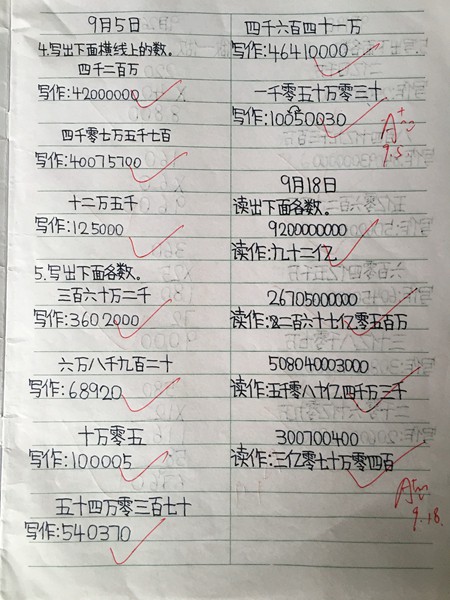 9月5日
4.写出下面横线上的数。
四千二百万
写作:42000000
四千零七万五千七百
写作:40075700
十二万五千
写作:125000
5.写出下面各数。
三百六十万二千
写作:3602000
六万八千九百二十
写作:68920
十万零五
写作:100005
五十四万零三百七十
写作:540370
四千六百四十一万
写作:46410000
一千零五十万零三十
写作:10050030
A+
9.5
9月18日
读出下面各数。
9200000000
读作:九十二亿
26705000000
读作:二百六十七亿零五百万
508040003000
读作:五千零八十亿四千万三千
300700400
读作:三亿零七十万零四百
9.18